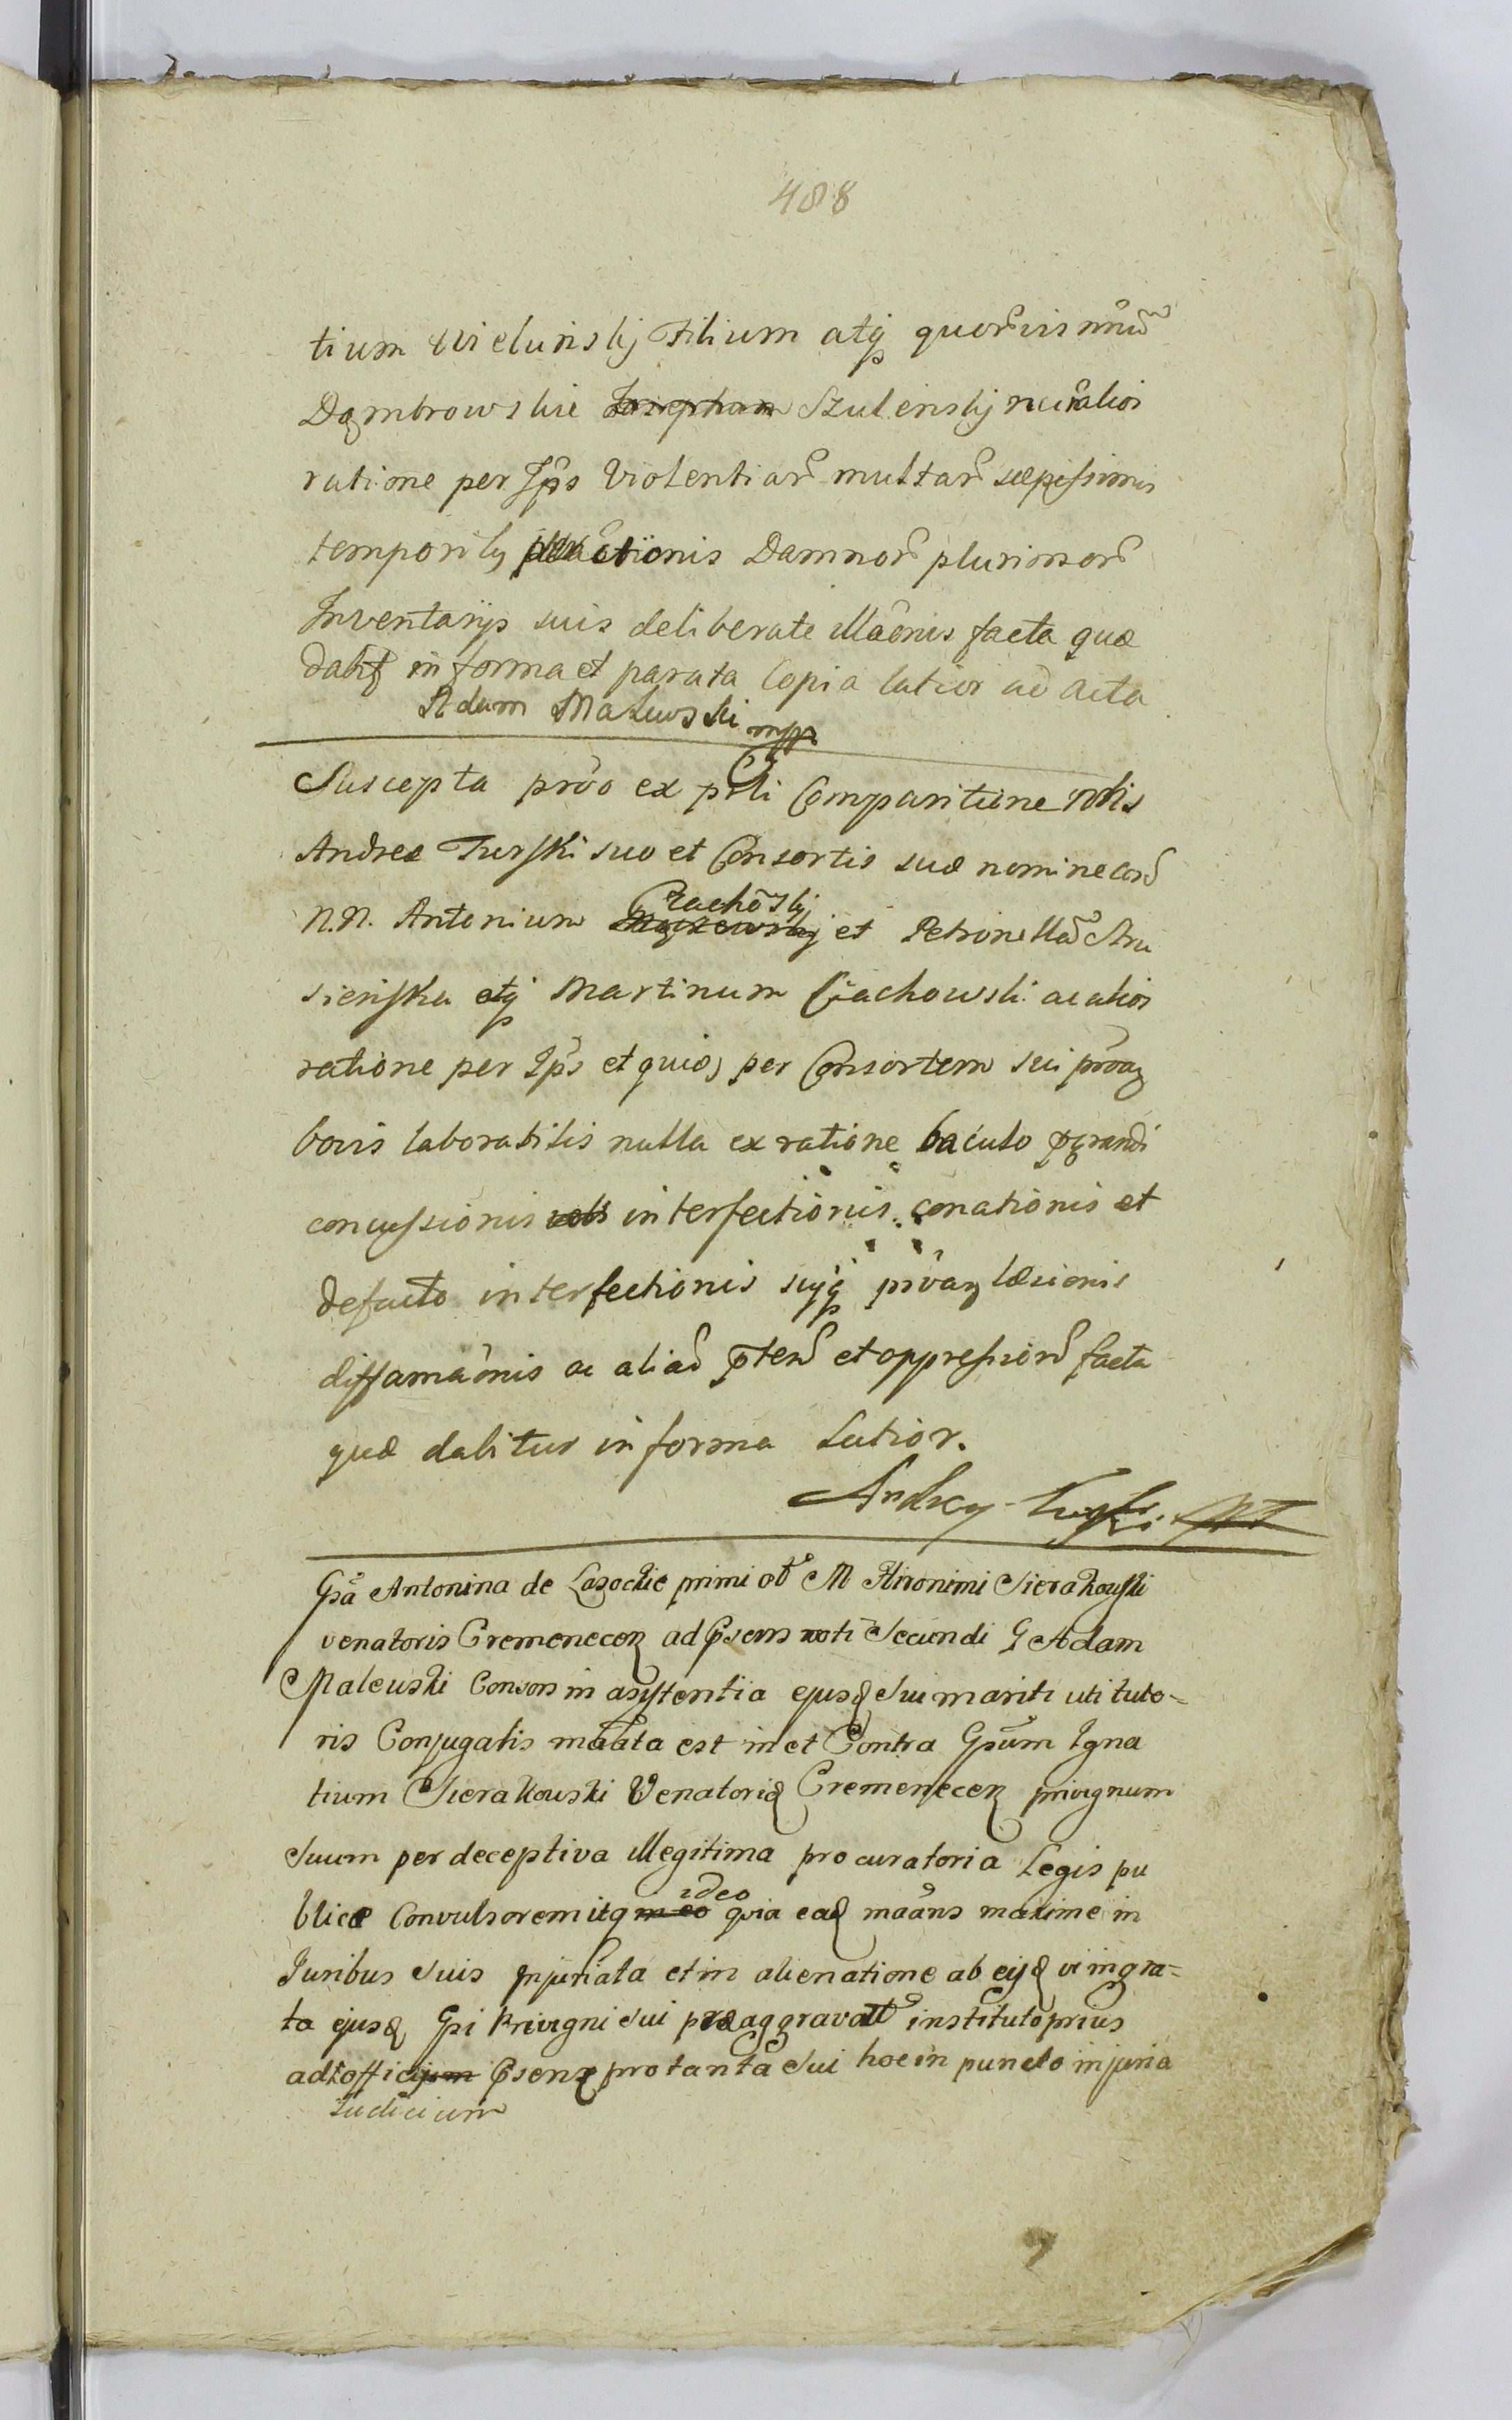 488
tium Wielunskj Filium atq quorvis
Dąmbrowskie Josepham Szulenskj alios
ratione per Ips violentiar multar sæpissimis
temporib actionis Damnor plurimor
Inventarijs suis deliberate illaonis facta quæ
dabit in forma et parata Copia latior ad acta
Adam Malewski mpp
Suscepta prõo ex psti Comparitione Nbis
Andreæ Turski suo et Consortis suæ nomine cor
N.N. Antonium Czachoskj et Petronellã Stru
sienska etq Martinum Czachowski ac alios
ratione per Ips et quidẽ per Consortem sui
bovis laborabilis nulla ex ratione baculo pgrandi
concussionis interfectionis conationis et
defacto interfectionis suijq læsionis
diffamaonis ac aliar et oppression facta
quæ dabitur in forma Latior.
Andrzey Turski
Gsa Antonina de Lasockie primi M Hironimi Sierakouski
venatoris Cremenecen ad psens voti Secundi G Adam
Maleuski Consors in asystentia ejusd Sui mariti uti tuto-
ris Conjugalis est in et Contra Gsum Igna
tium Sierakouski Venatorid Cremenecen privignum
Suum per deceptiva illegitima procuratoria Legis pu
blicæ Convulsorem itq in eo ideo quia ead maans maxime in
Juribus Suis Injuriata et in alienatione ab eijd vi ingra-
ta ejusd Gsi Privigni Sui præaggravat instituto prius
ad officium psens pro tanta Sui hoc in puncto injuria
Judicium